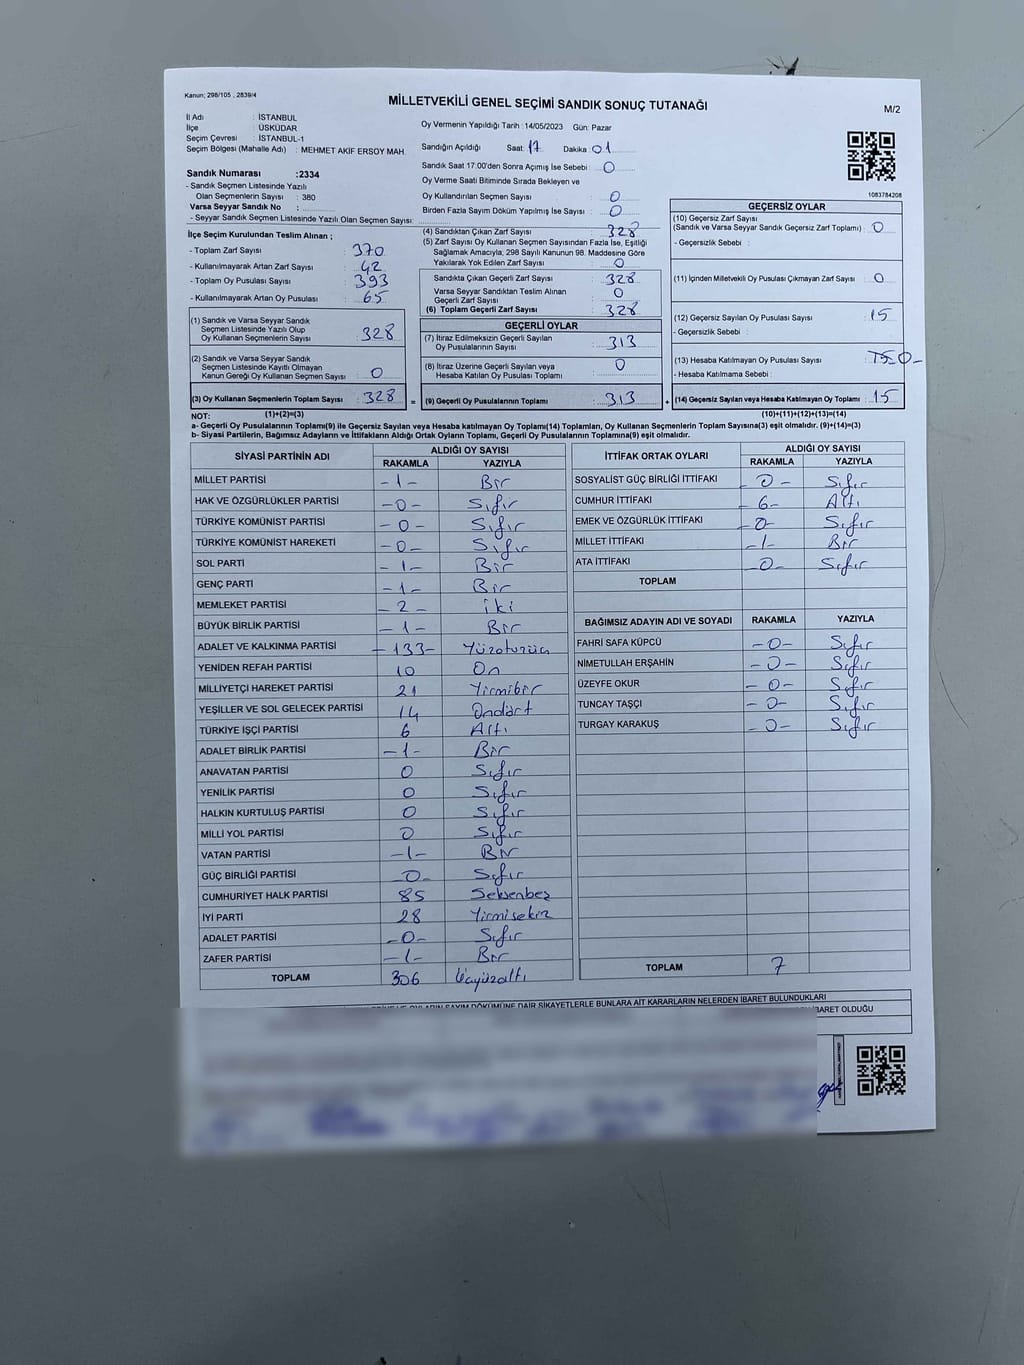 Kanun; 298/105 , 2839/4
MİLLETVEKİLİ GENEL SEÇİMİ SANDIK SONUÇ TUTANAĞI
M/2
İl Adı : İSTANBUL
İlçe : ÜSKÜDAR
Seçim Çevresi : İSTANBUL-1
Seçim Bölgesi (Mahalle Adı) : MEHMET AKİF ERSOY MAH.
Sandık Numarası :2334
- Sandık Seçmen Listesinde Yazılı
Olan Seçmenlerin Sayısı : 380
Varsa Seyyar Sandık No :
- Seyyar Sandık Seçmen Listesinde Yazılı Olan Seçmen Sayısı:
İlçe Seçim Kurulundan Teslim Alınan ;
- Toplam Zarf Sayısı : 370
- Kullanılmayarak Artan Zarf Sayısı : 42
- Toplam Oy Pusulası Sayısı : 393
- Kullanılmayarak Artan Oy Pusulası : 65
(1) Sandık ve Varsa Seyyar Sandık
Seçmen Listesinde Yazılı Olup
Oy Kullanan Seçmenlerin Sayısı : 328
(2) Sandık ve Varsa Seyyar Sandık
Seçmen Listesinde Kayıtlı Olmayan
Kanun Gereği Oy Kullanan Seçmen Sayısı : 0
(3) Oy Kullanan Seçmenlerin Toplam Sayısı : 328
Oy Vermenin Yapıldığı Tarih : 14/05/2023 Gün: Pazar
Sandığın Açıldığı Saat: 17 Dakika : 01
Sandık Saat 17:00'den Sonra Açımış İse Sebebi : 0
Oy Verme Saati Bitiminde Sırada Bekleyen ve
Oy Kullandırılan Seçmen Sayısı : 0
Birden Fazla Sayım Döküm Yapılmış İse Sayısı : 0
(4) Sandıktan Çıkan Zarf Sayısı : 328
(5) Zarf Sayısı Oy Kullanan Seçmen Sayısından Fazla İse, Eşitliği
Sağlamak Amacıyla, 298 Sayılı Kanunun 98. Maddesine Göre
Yakılarak Yok Edilen Zarf Sayısı : 0
Sandıkta Çıkan Geçerli Zarf Sayısı : 328
Varsa Seyyar Sandıktan Teslim Alınan
Geçerli Zarf Sayısı : 0
(6) Toplam Geçerli Zarf Sayısı : 328
GEÇERLİ OYLAR
(7) İtiraz Edilmeksizin Geçerli Sayılan
Oy Pusulalarının Sayısı : 313
(8) İtiraz Üzerine Geçerli Sayılan veya
Hesaba Katılan Oy Pusulası Toplamı : 0
= (9) Geçerli Oy Pusulalarının Toplamı : 313
1083784208
GEÇERSİZ OYLAR
(10) Geçersiz Zarf Sayısı
(Sandık ve Varsa Seyyar Sandık Geçersiz Zarf Toplamı) : 0
- Geçersizlik Sebebi :
(11) İçinden Milletvekili Oy Pusulası Çıkmayan Zarf Sayısı : 0
(12) Geçersiz Sayılan Oy Pusulası Sayısı : 15
- Geçersizlik Sebebi :
(13) Hesaba Katılmayan Oy Pusulası Sayısı : 15 0-
- Hesaba Katılmama Sebebi :
+ (14) Geçersiz Sayılan veya Hesaba Katılmayan Oy Toplamı : 15
NOT: (1)+(2)=(3) (10)+(11)+(12)+(13)=(14)
a- Geçerli Oy Pusulalarının Toplamı(9) ile Geçersiz Sayılan veya Hesaba katılmayan Oy Toplamı(14) Toplamları, Oy Kullanan Seçmenlerin Toplam Sayısına(3) eşit olmalıdır. (9)+(14)=(3)
b- Siyasi Partilerin, Bağımsız Adayların ve İttifakların Aldığı Ortak Oyların Toplamı, Geçerli Oy Pusulalarının Toplamına(9) eşit olmalıdır.
SİYASİ PARTİNİN ADI ALDIĞI OY SAYISI
RAKAMLA YAZIYLA
MİLLET PARTİSİ -1- Bir
HAK VE ÖZGÜRLÜKLER PARTİSİ -0- Sıfır
TÜRKİYE KOMÜNİST PARTİSİ -0- Sıfır
TÜRKİYE KOMÜNİST HAREKETİ -0- Sıfır
SOL PARTİ -1- Bir
GENÇ PARTİ -1- Bir
MEMLEKET PARTİSİ -2- iki
BÜYÜK BİRLİK PARTİSİ -1- Bir
ADALET VE KALKINMA PARTİSİ -133- Yüzotuzüç
YENİDEN REFAH PARTİSİ 10 On
MİLLİYETÇİ HAREKET PARTİSİ 21 Yirmibir
YEŞİLLER VE SOL GELECEK PARTİSİ 14 Ondört
TÜRKİYE İŞÇİ PARTİSİ 6 Altı
ADALET BİRLİK PARTİSİ -1- Bir
ANAVATAN PARTİSİ 0 Sıfır
YENİLİK PARTİSİ 0 Sıfır
HALKIN KURTULUŞ PARTİSİ 0 Sıfır
MİLLİ YOL PARTİSİ 0 Sıfır
VATAN PARTİSİ -1- Bir
GÜÇ BİRLİĞİ PARTİSİ -0- Sıfır
CUMHURİYET HALK PARTİSİ 85 Seksenbeş
İYİ PARTİ 28 Yirmisekiz
ADALET PARTİSİ -0- Sıfır
ZAFER PARTİSİ -1- Bir
TOPLAM 306 Üçyüzaltı
İTTİFAK ORTAK OYLARI ALDIĞI OY SAYISI
RAKAMLA YAZIYLA
SOSYALİST GÜÇ BİRLİĞİ İTTİFAKI -0- Sıfır
CUMHUR İTTİFAKI 6- Altı
EMEK VE ÖZGÜRLÜK İTTİFAKI -0- Sıfır
MİLLET İTTİFAKI -1- Bir
ATA İTTİFAKI -0- Sıfır
TOPLAM
BAĞIMSIZ ADAYIN ADI VE SOYADI RAKAMLA YAZIYLA
FAHRİ SAFA KÜPCÜ -0- Sıfır
NİMETULLAH ERŞAHİN -0- Sıfır
ÜZEYFE OKUR -0- Sıfır
TUNCAY TAŞÇI -0- Sıfır
TURGAY KARAKUŞ -0- Sıfır
TOPLAM 7
OYLARIN SAYIM DÖKÜMÜNE DAİR ŞİKAYETLERLE BUNLARA AİT KARARLARIN NELERDEN İBARET BULUNDUKLARI
İBARET OLDUĞU